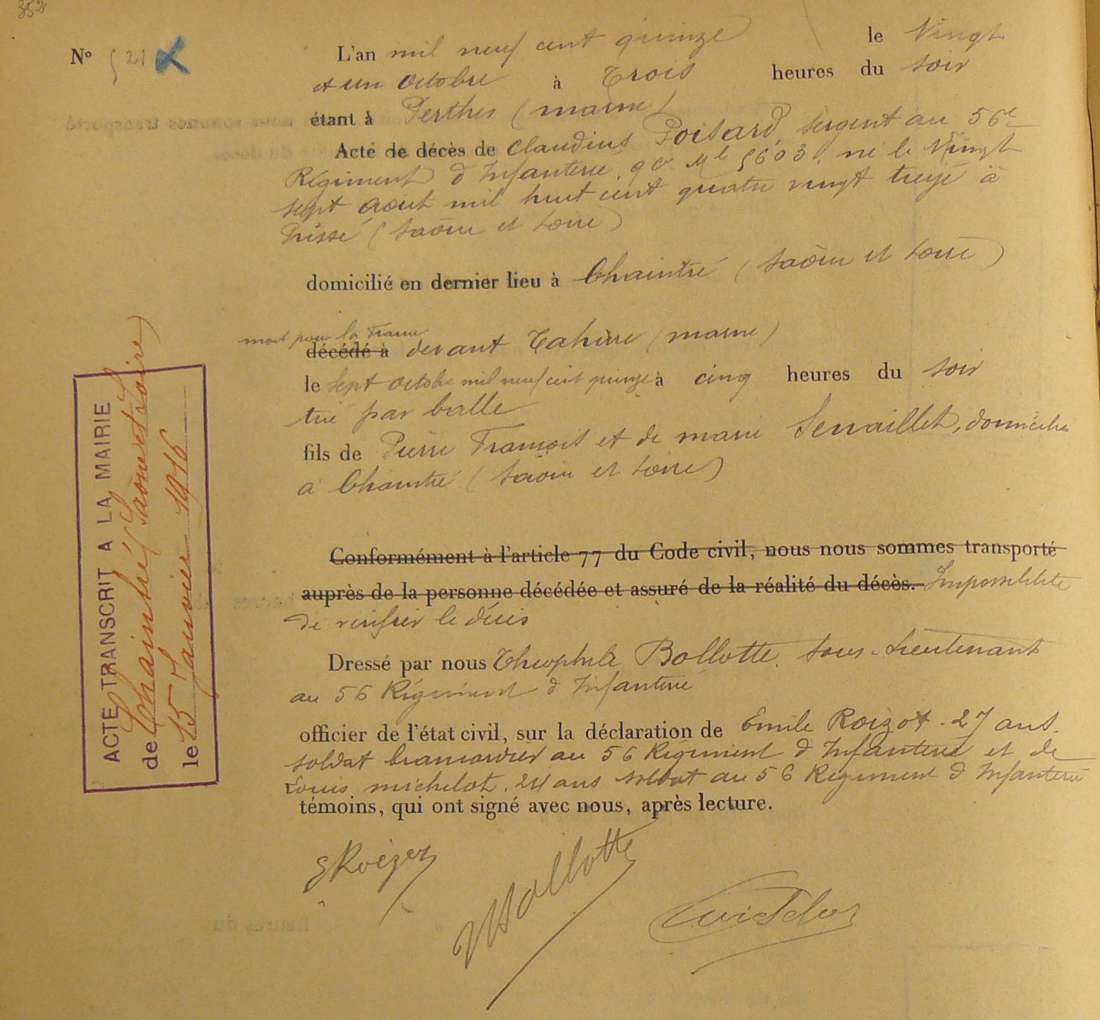 352
N° 521
L'an mil neuf cent quinze le Vingt
et un octobre à Trois heures du soir
étant à Perthes (marne)
Acte de décès de Claudius Poisard, sergent au 56e
Régiment d'Infanterie, 9e Mle 5603, né le Vingt
sept aout mil huit cent quatre vingt treize à
Prissé (Saône et Loire)
domicilié en dernier lieu à Chaintré (Saône et Loire)
mort pour la France
décédé à devant Tahure (marne)
le sept octobre mil neuf cent quinze à cinq heures du soir
tué par balle
fils de Pierre François et de marie Senaillet, domicilié
à Chaintré (Saône et Loire)
Conformément à l'article 77 du Code civil, nous nous sommes transporté
auprès de la personne décédée et assuré de la réalité du décès. Impossibilité
de vérifier le décès
Dressé par nous Théophile Bollotte, sous-Lieutenant
au 56 Régiment d'Infanterie
officier de l'état civil, sur la déclaration de Emile Roizot. 27 ans
soldat brancardier au 56 Régiment d'Infanterie et de
Louis michelot, 24 ans soldat au 56 Régiment d'Infanterie
témoins, qui ont signé avec nous, après lecture.
ERoizot
Bollotte
ACTE TRANSCRIT A LA MAIRIE
de Chaintré (Saône et Loire)
le 15 Janvier 1916